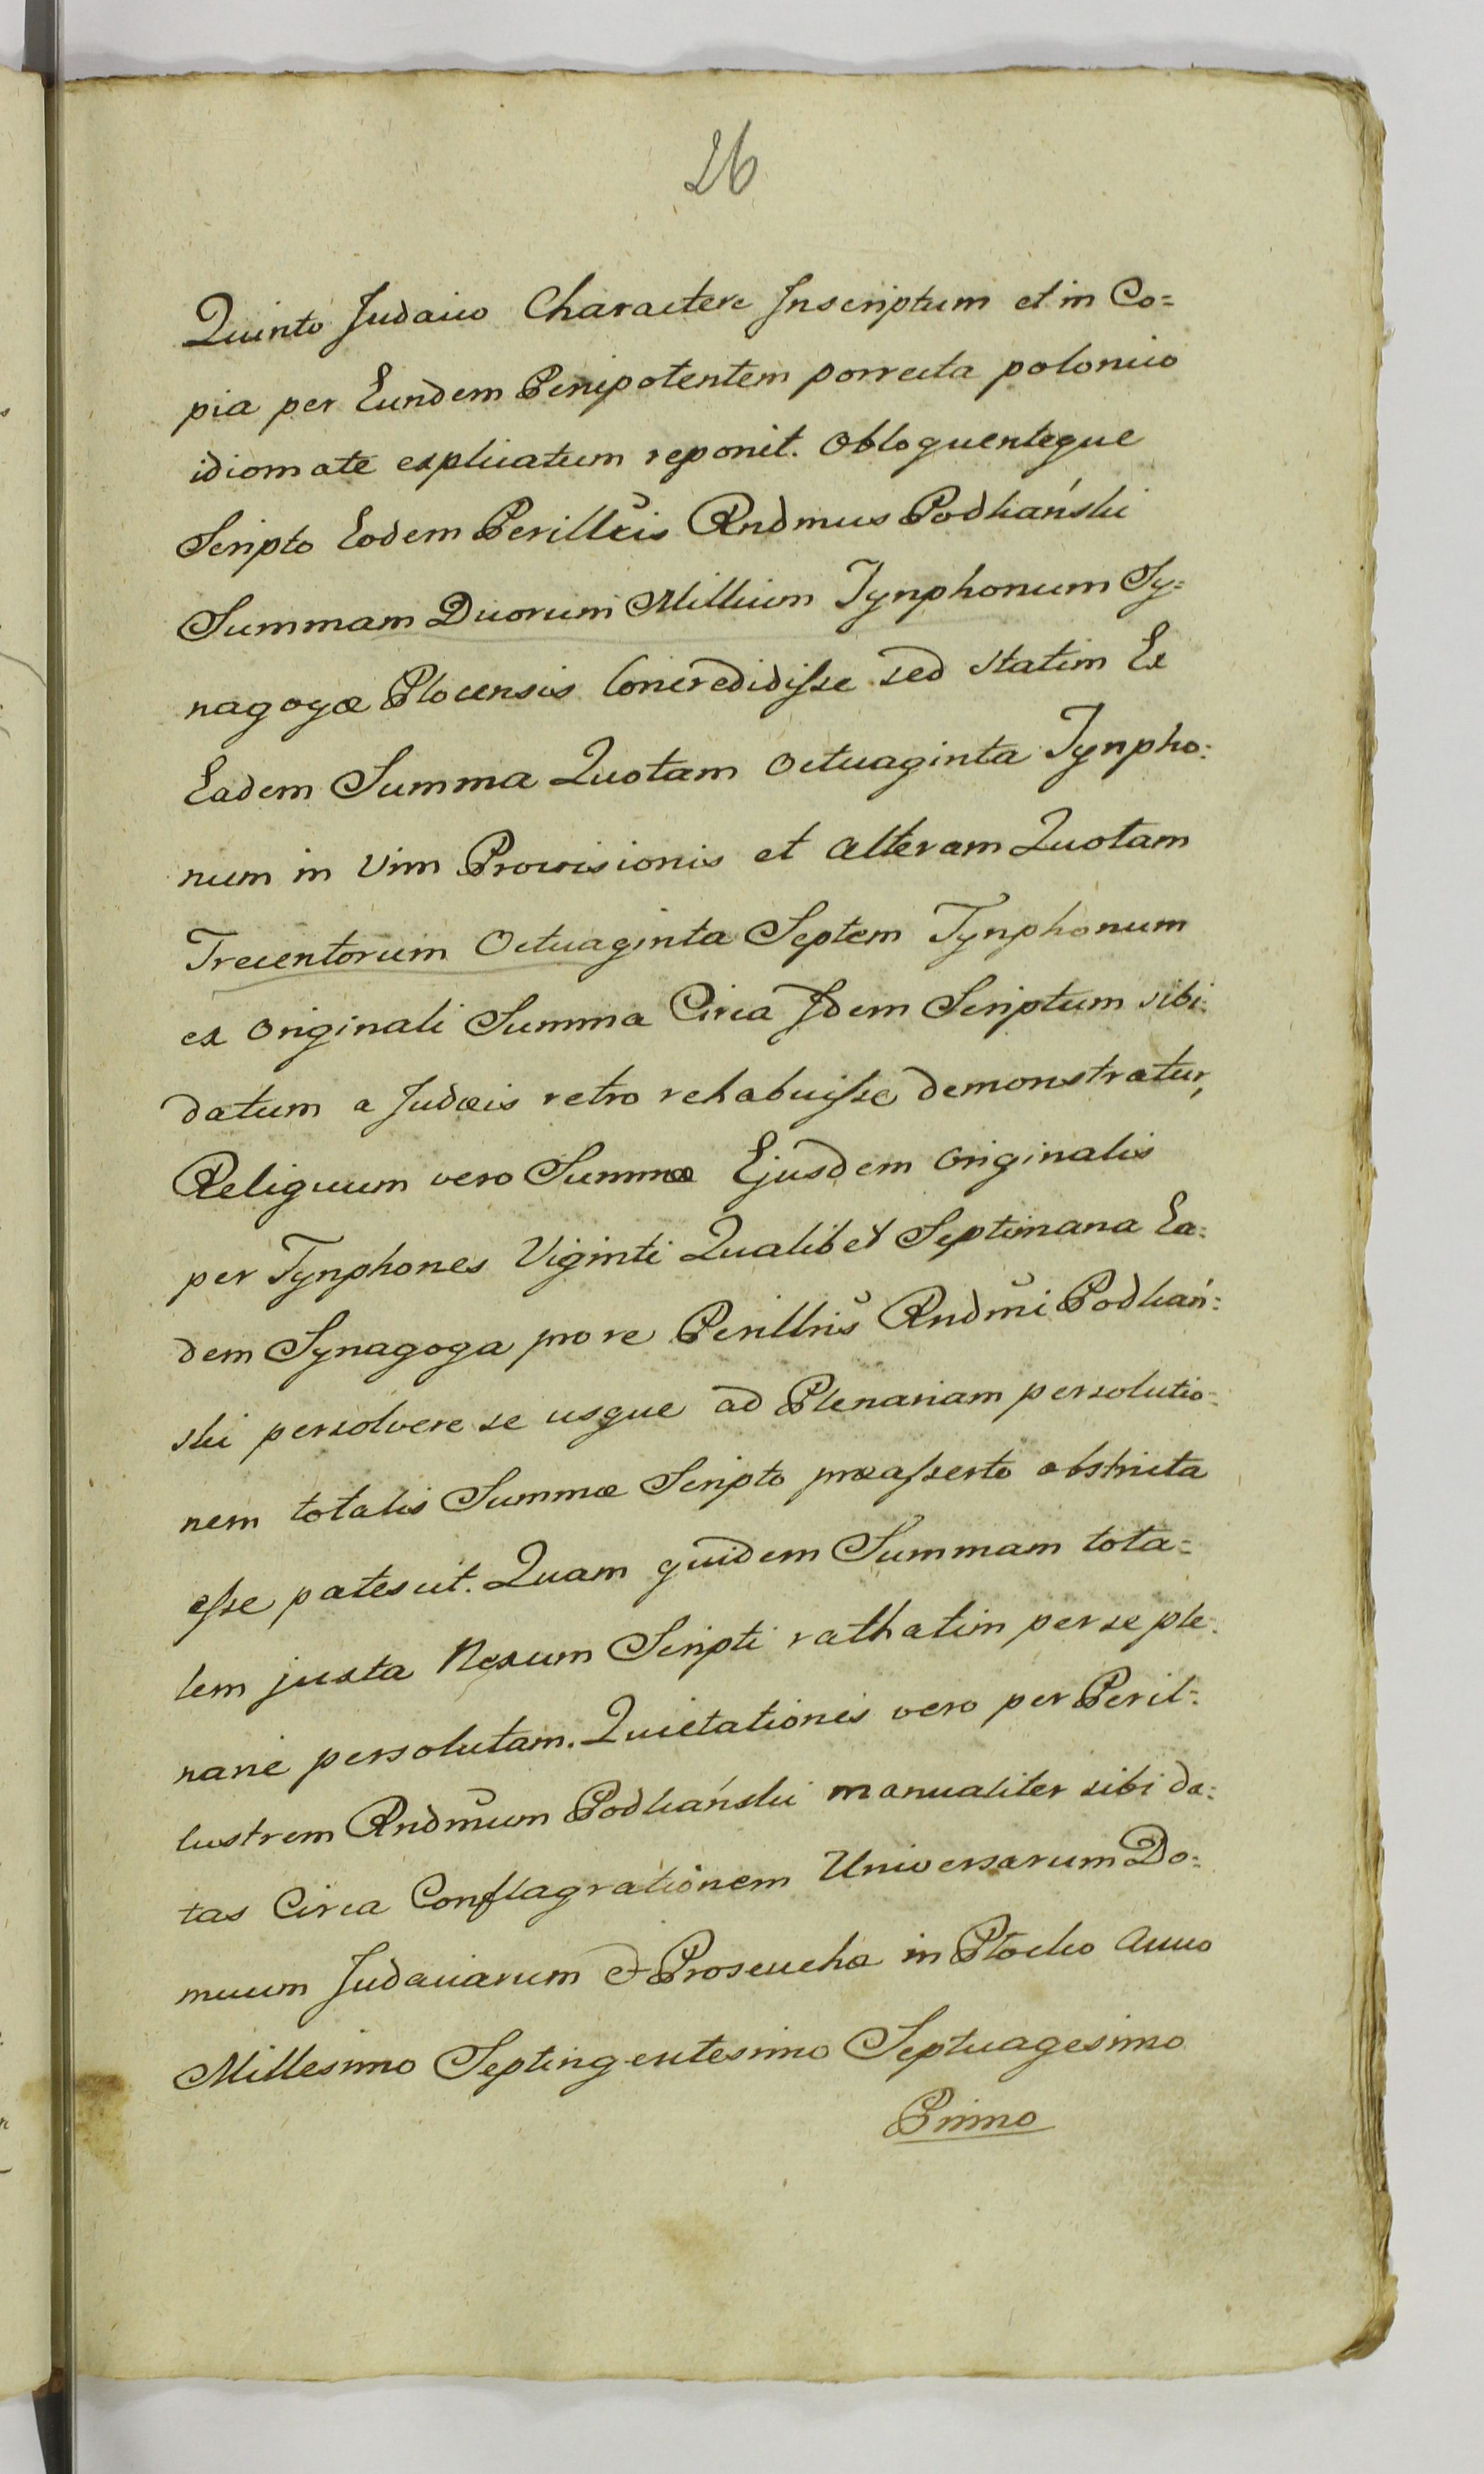 26
Quinto Judaico Charactere Inscriptum et in Co=
pia per Eundem Plenipotentem porrecta polonico
idiomate explicatum reponit. Obloquenteque
Scripto Eodem Perillris Rndmus Podkański
Summam Duorum Millium Tynphonum Sy=
nagogæ Plocensis Concredidisse sed statim Ex
Eadem Summa Quotam Octuaginta Tynpho=
num in Vim Prowisionis et Alteram Quotam
Trecentorum Octuaginta Septem Tynphonum
ex Originali Summa Circa Idem Scriptum sibi
datum a Judæis retro rehabuisse demonstratur,
Reliquum vero Summæ Ejusdem Originalis
per Tynphones Viginti Qualibet Septimana Ea=
dem Synagoga pro re Perillris Rndmi Podkań=
ski persolvere se usque ad Plenariam persolutio=
nem totalis Summæ Scripto præasserto obstricta
esse patescit. Quam quidem Summam tota=
lem juxta Nexum Scripti rathatim per se ple=
narie persolutam. Quietationes vero per Peril=
lustrem Rndmum Podkański manualiter sibi da=
tas Circa Conflagrationem Universarum Do=
muum Judaicarum & Proseucha in Płocko Anno
Millesimo Septingentesimo Septuagesimo
Primo